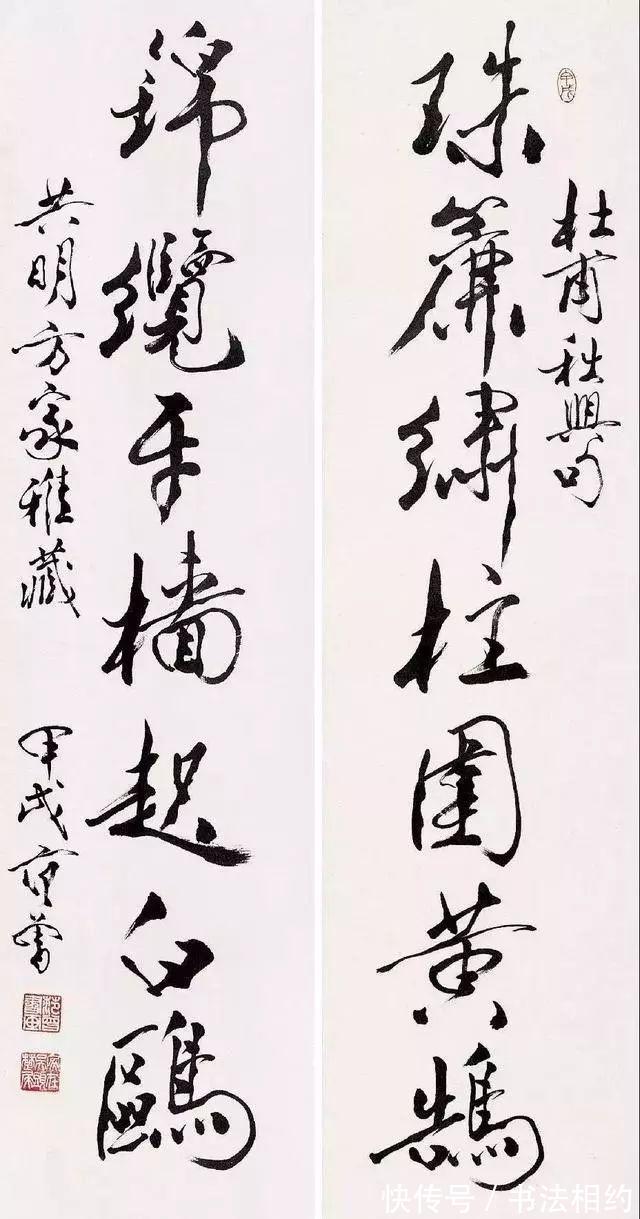 杜甫秋興句
珠簾繡柱圍黄鵠
錦纜牙檣起白鷗
共明方家雅藏
甲戌范曾
甲戌
快传号 / 书法相约